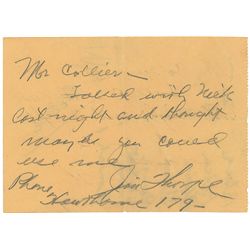 Mr Collier –
Talked with Nick
last night and thought
maybe you could
use me
Jim Thorpe
Phone –
Hawthorne 179 –